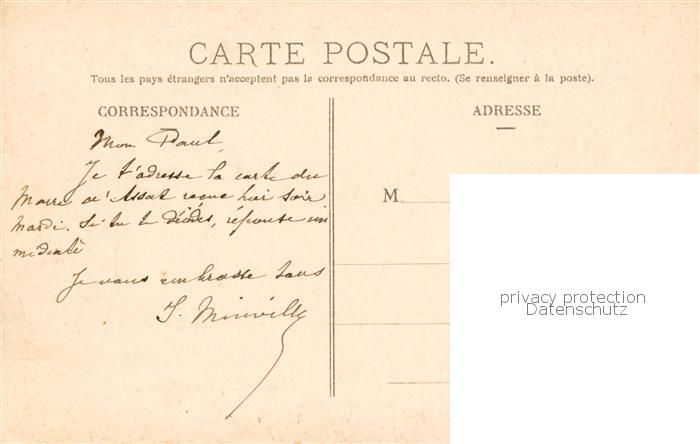 CARTE POSTALE.
Tous les pays étrangers n'acceptent pas la correspondance au recto. (Se renseigner à la poste).
CORRESPONDANCE
ADRESSE
Mon Paul,
Je t'adresse la carte du
Maire d'Assat reçue hier soir
Mardi. Si tu te décides, réponse im
médiate
Je vous embrasse tous
J. Minvielle
M
privacy protection
Datenschutz